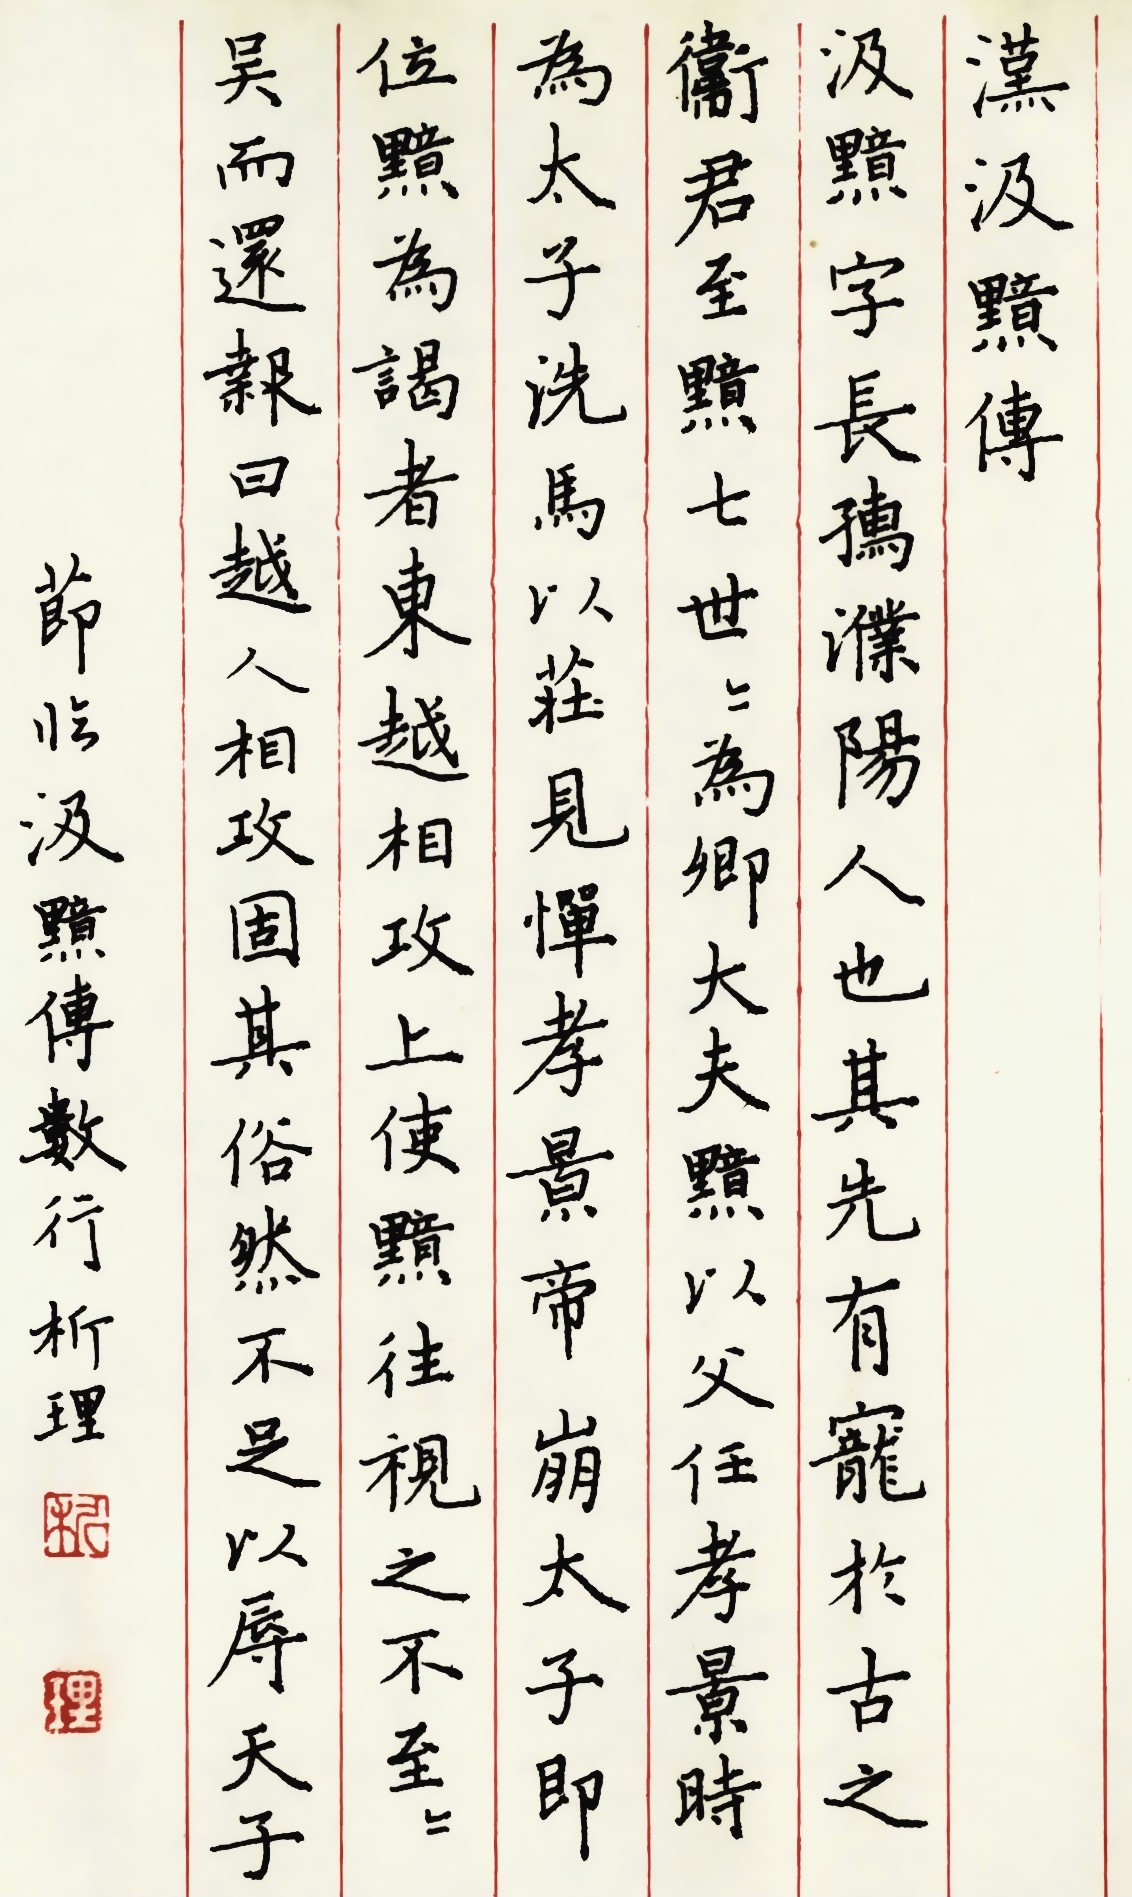 漢汲黯傳
汲黯字長孺濮陽人也其先有寵於古之
衞君至黯七世〻為卿大夫黯以父任孝景時
為太子洗馬以莊見憚孝景帝崩太子即
位黯為謁者東越相攻上使黯往視之不至〻
吴而還報曰越人相攻固其俗然不足以辱天子
莭临汲黯傳數行析理
理